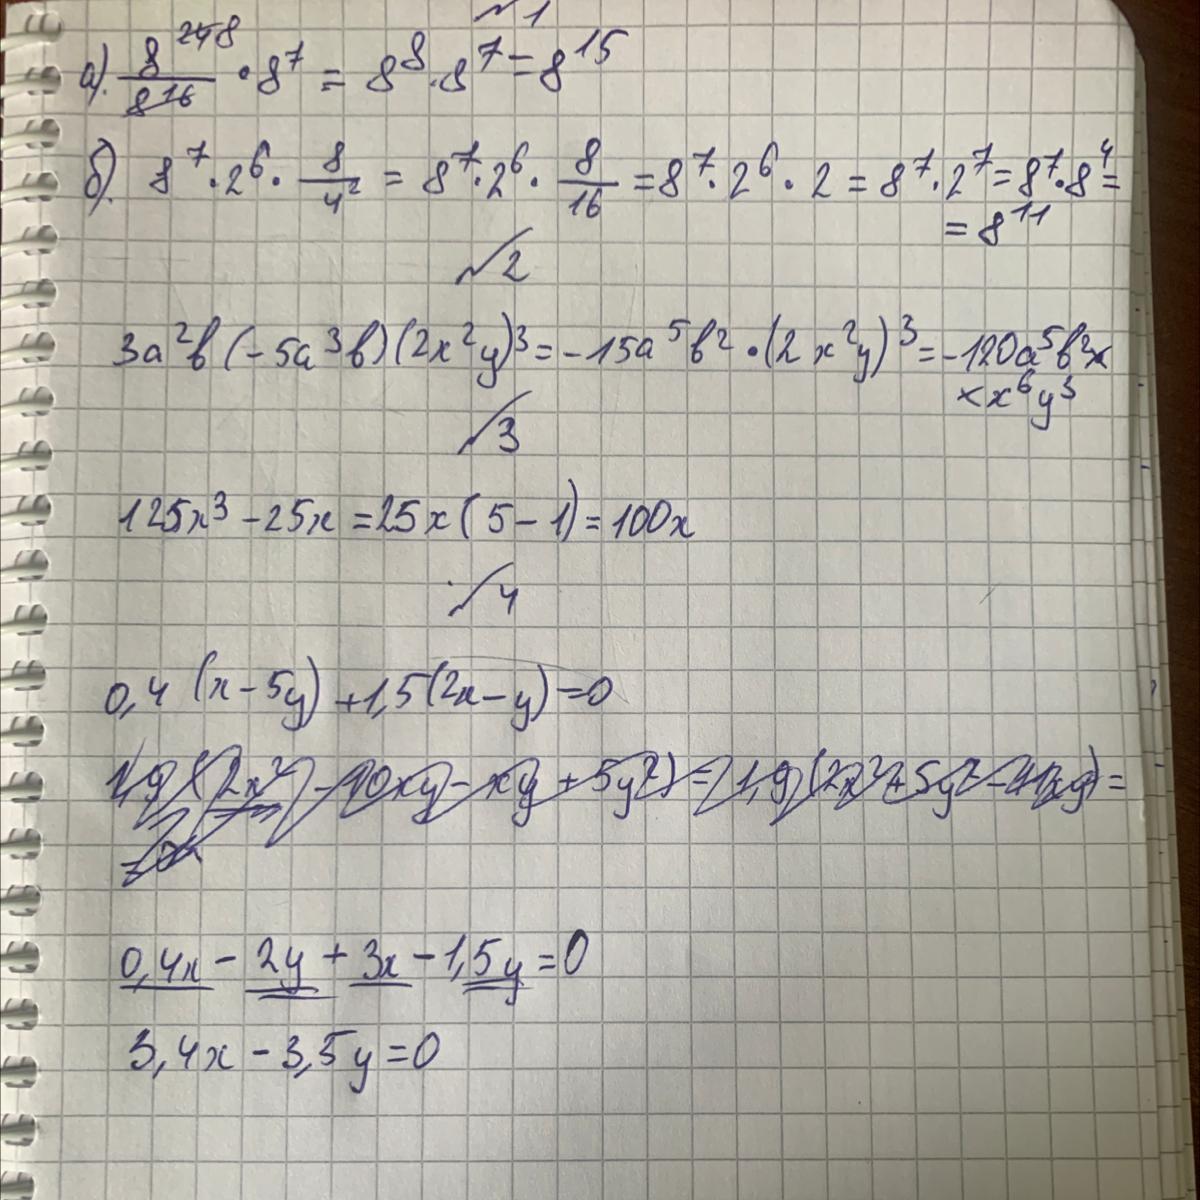 №1
а). 8^24 8/8^16 · 8^7 = 8^8 · 8^7 = 8^15
б). 8^7 · 2^6 · 8/4^2 = 8^7 · 2^6 · 8/16 = 8^7 · 2^6 · 2 = 8^7 · 2^7 = 8^7 · 8^4 =
= 8^11
№2
3a^2b(-5a^3b)(2x^2y)^3 = -15a^5b^2 · (2x^2y)^3 = -120a^5b^2×
×x^6y^3
№3
125x^3 - 25x = 25x(5-1) = 100x
№4
0,4(x-5y) + 1,5(2x-y) = 0
1,9(2x^2 - 10xy - xy + 5y^2) = 1,9(2x^2 + 5y^2 - 11xy) =
0,4x - 2y + 3x - 1,5y = 0
3,4x - 3,5y = 0